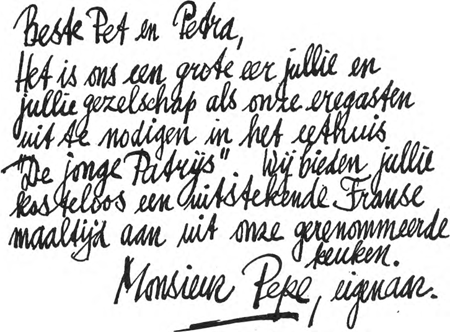 Beste Pet en Petra,
Het is ons een grote eer jullie en
jullie gezelschap als onze eregasten
uit te nodigen in het eethuis
"De jonge Patrijs". Wij bieden jullie
kosteloos een uitstekende Franse
maaltijd aan uit onze gerenommeerde
keuken.
Monsieur Pepe, eigenaar.